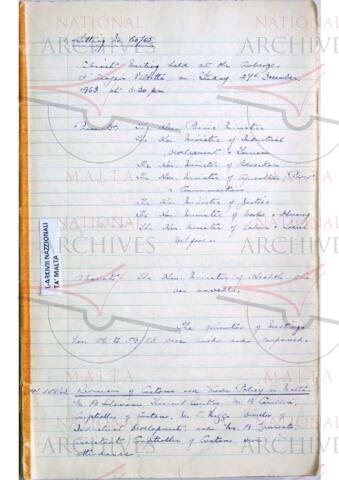 Sitting No 60/63
Cabinet Meeting held at the Auberge
d'Aragon Valletta on Friday 27th December
1963 at 5.30 pm
Present: The Hon. Prime Minister
The Hon. Minister of Industrial
Development & Tourism
The Hon. Minister of Education
The Hon. Minister of Agriculture, Power
& Communications
The Hon. Minister of Justice
The Hon. Minister of Works & Housing
The Hon. Minister of Labour & Social
Welfare
L-ARKIVJI NAZZJONALI
TA' MALTA
The Hon. Minister of Health who
was unwell.
The minutes of meetings
Nos 56 to 59/63 were read and confirmed.
Revision of Customs and Trade Policy in Malta
Mr.
Comptroller of Customs, Mr. Director of
Industrial Development and Mr.
Assistant Comptroller of Customs, were in
attendance.
NATIONAL
ARCHIVES
MALTA